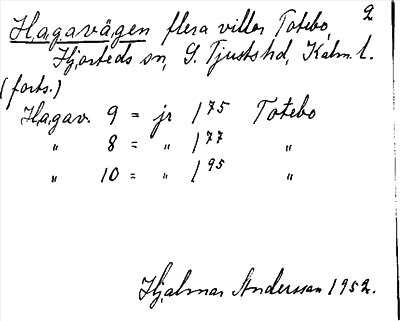 2
Hagavägen flera villor Totebo,
Hjorteds sn, S. Tjusts hd, Kalm. l.
(forts.)
Hagav. 9 = jr 1⁷⁵ Totebo
" 8 = " 1⁷⁷ "
" 10 = " 1⁹⁵ "
Hjalmar Andersson 1952.